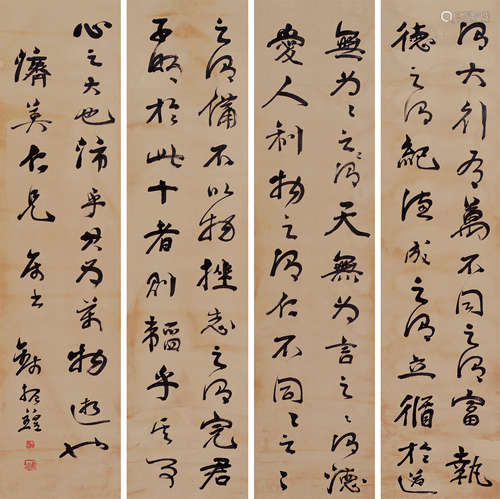 謂大行有萬不同之謂富執
德之謂紀德成之謂立循於道
無為〻之〻謂天無為言之〻謂德
愛人利物之謂仁不同〻之〻
之謂備不以物挫志之謂完君
子明於此十者則韜乎其事
心之大也沛乎其為萬物逝也
美仁兄屬書 錢